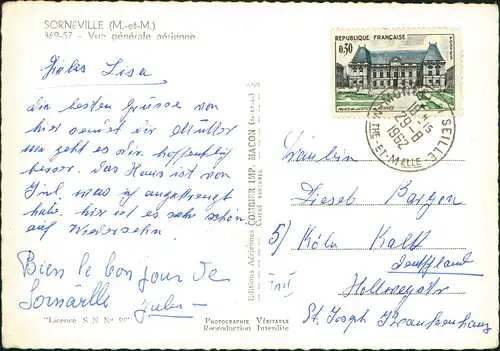 SORNÉVILLE (M.-et-M.)
369-57 - Vue générale aérienne
Lisa
die besten Grüsse von
hier sendet dir Mutter
wie geht es dir hoffentlich
besser. Das Haus ist von
was ich angestrengt
habe, hir ist es sehr schön
auf Wiedersehn
Bien le bon jour de
Sornéville
"Licence S N N° 90"
Editions Aériennes COMBIER IMP. MACON
CLICHÉ
PHOTOGRAPHIE VÉRITABLE
Reproduction Interdite
REPUBLIQUE FRANÇAISE
0,30
POSTES
PALAIS DE JUSTICE DE RENNES
29-8
1962
MTHE-ET-MELLE
Fräulein
Liesel Bargen
5) Köln Kalk
Deutschland
Hollwegstr
St. Joseph Krankenhaus